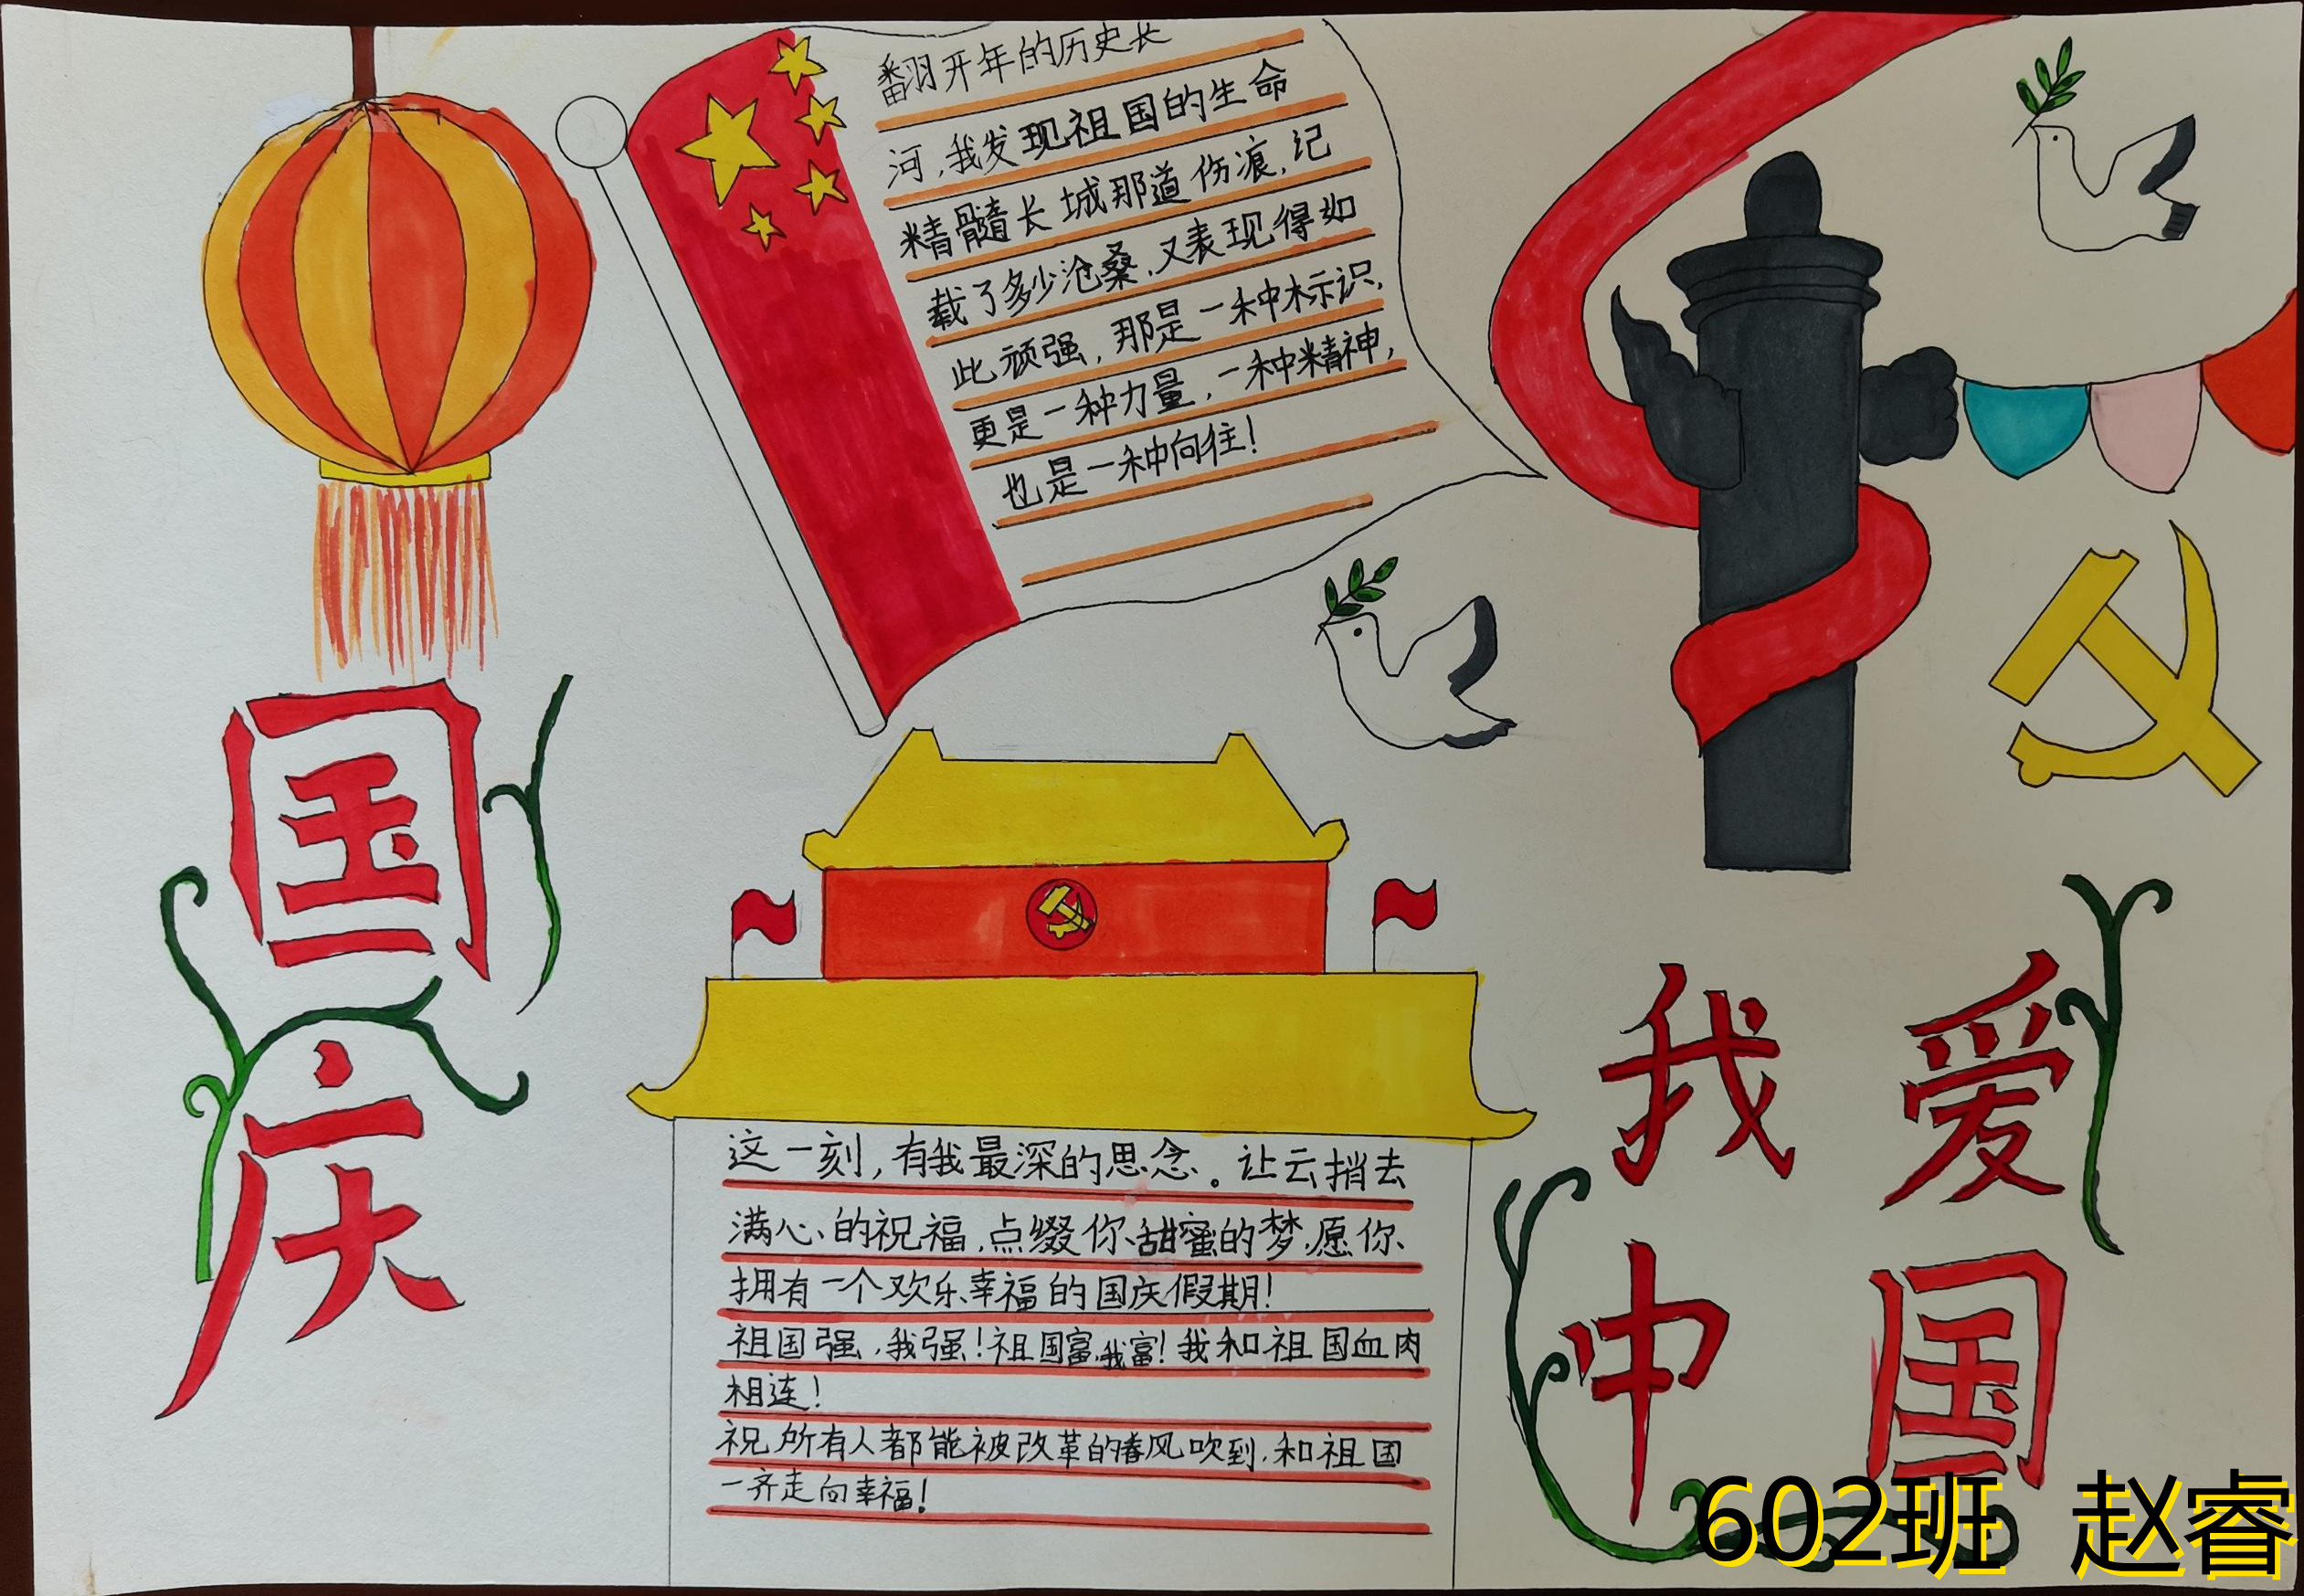 翻开年的历史长
河,我发现祖国的生命
精髓长城那道伤痕,记
载了多少沧桑,又表现得如
此顽强,那是一种标识,
更是一种力量,一种精神,
也是一种向往!
国庆
这一刻,有我最深的思念。让云捎去
满心的祝福,点缀你甜蜜的梦,愿你
拥有一个欢乐幸福的国庆假期!
祖国强,我强!祖国富,我富!我和祖国血肉
相连!
祝所有人都能被改革的春风吹到,和祖国
一齐走向幸福!
我爱
中国
602班 赵睿